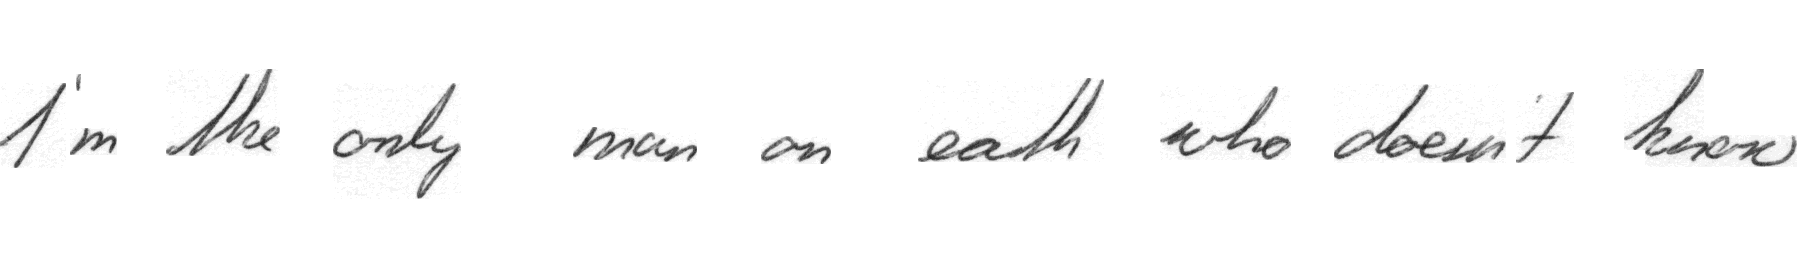 I'm the only man on earth who doesn't know